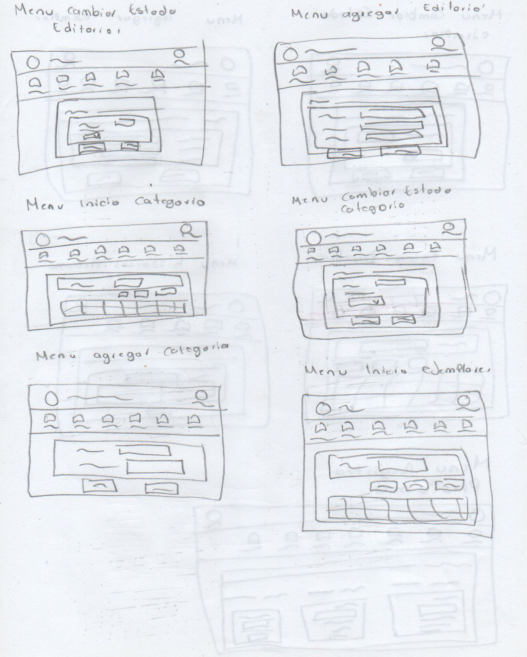 Menu cambiar Estado
Editorial
Menu agregar Editorial
Menu Inicio Categoria
Menu cambiar Estado
Categoria
Menu agregar Categoria
Menu Inicio ejemplares